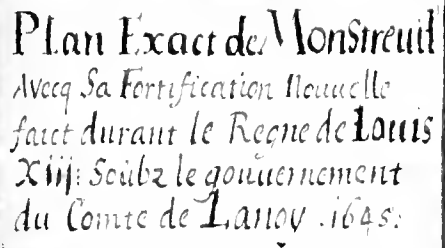 Plan Exact de Monstreuil
Avecq Sa Fortification Nouuelle
faict durant le Regne de Louis
Xiij: Soubz le gouuernement
du Comte de Lanoy .1645: